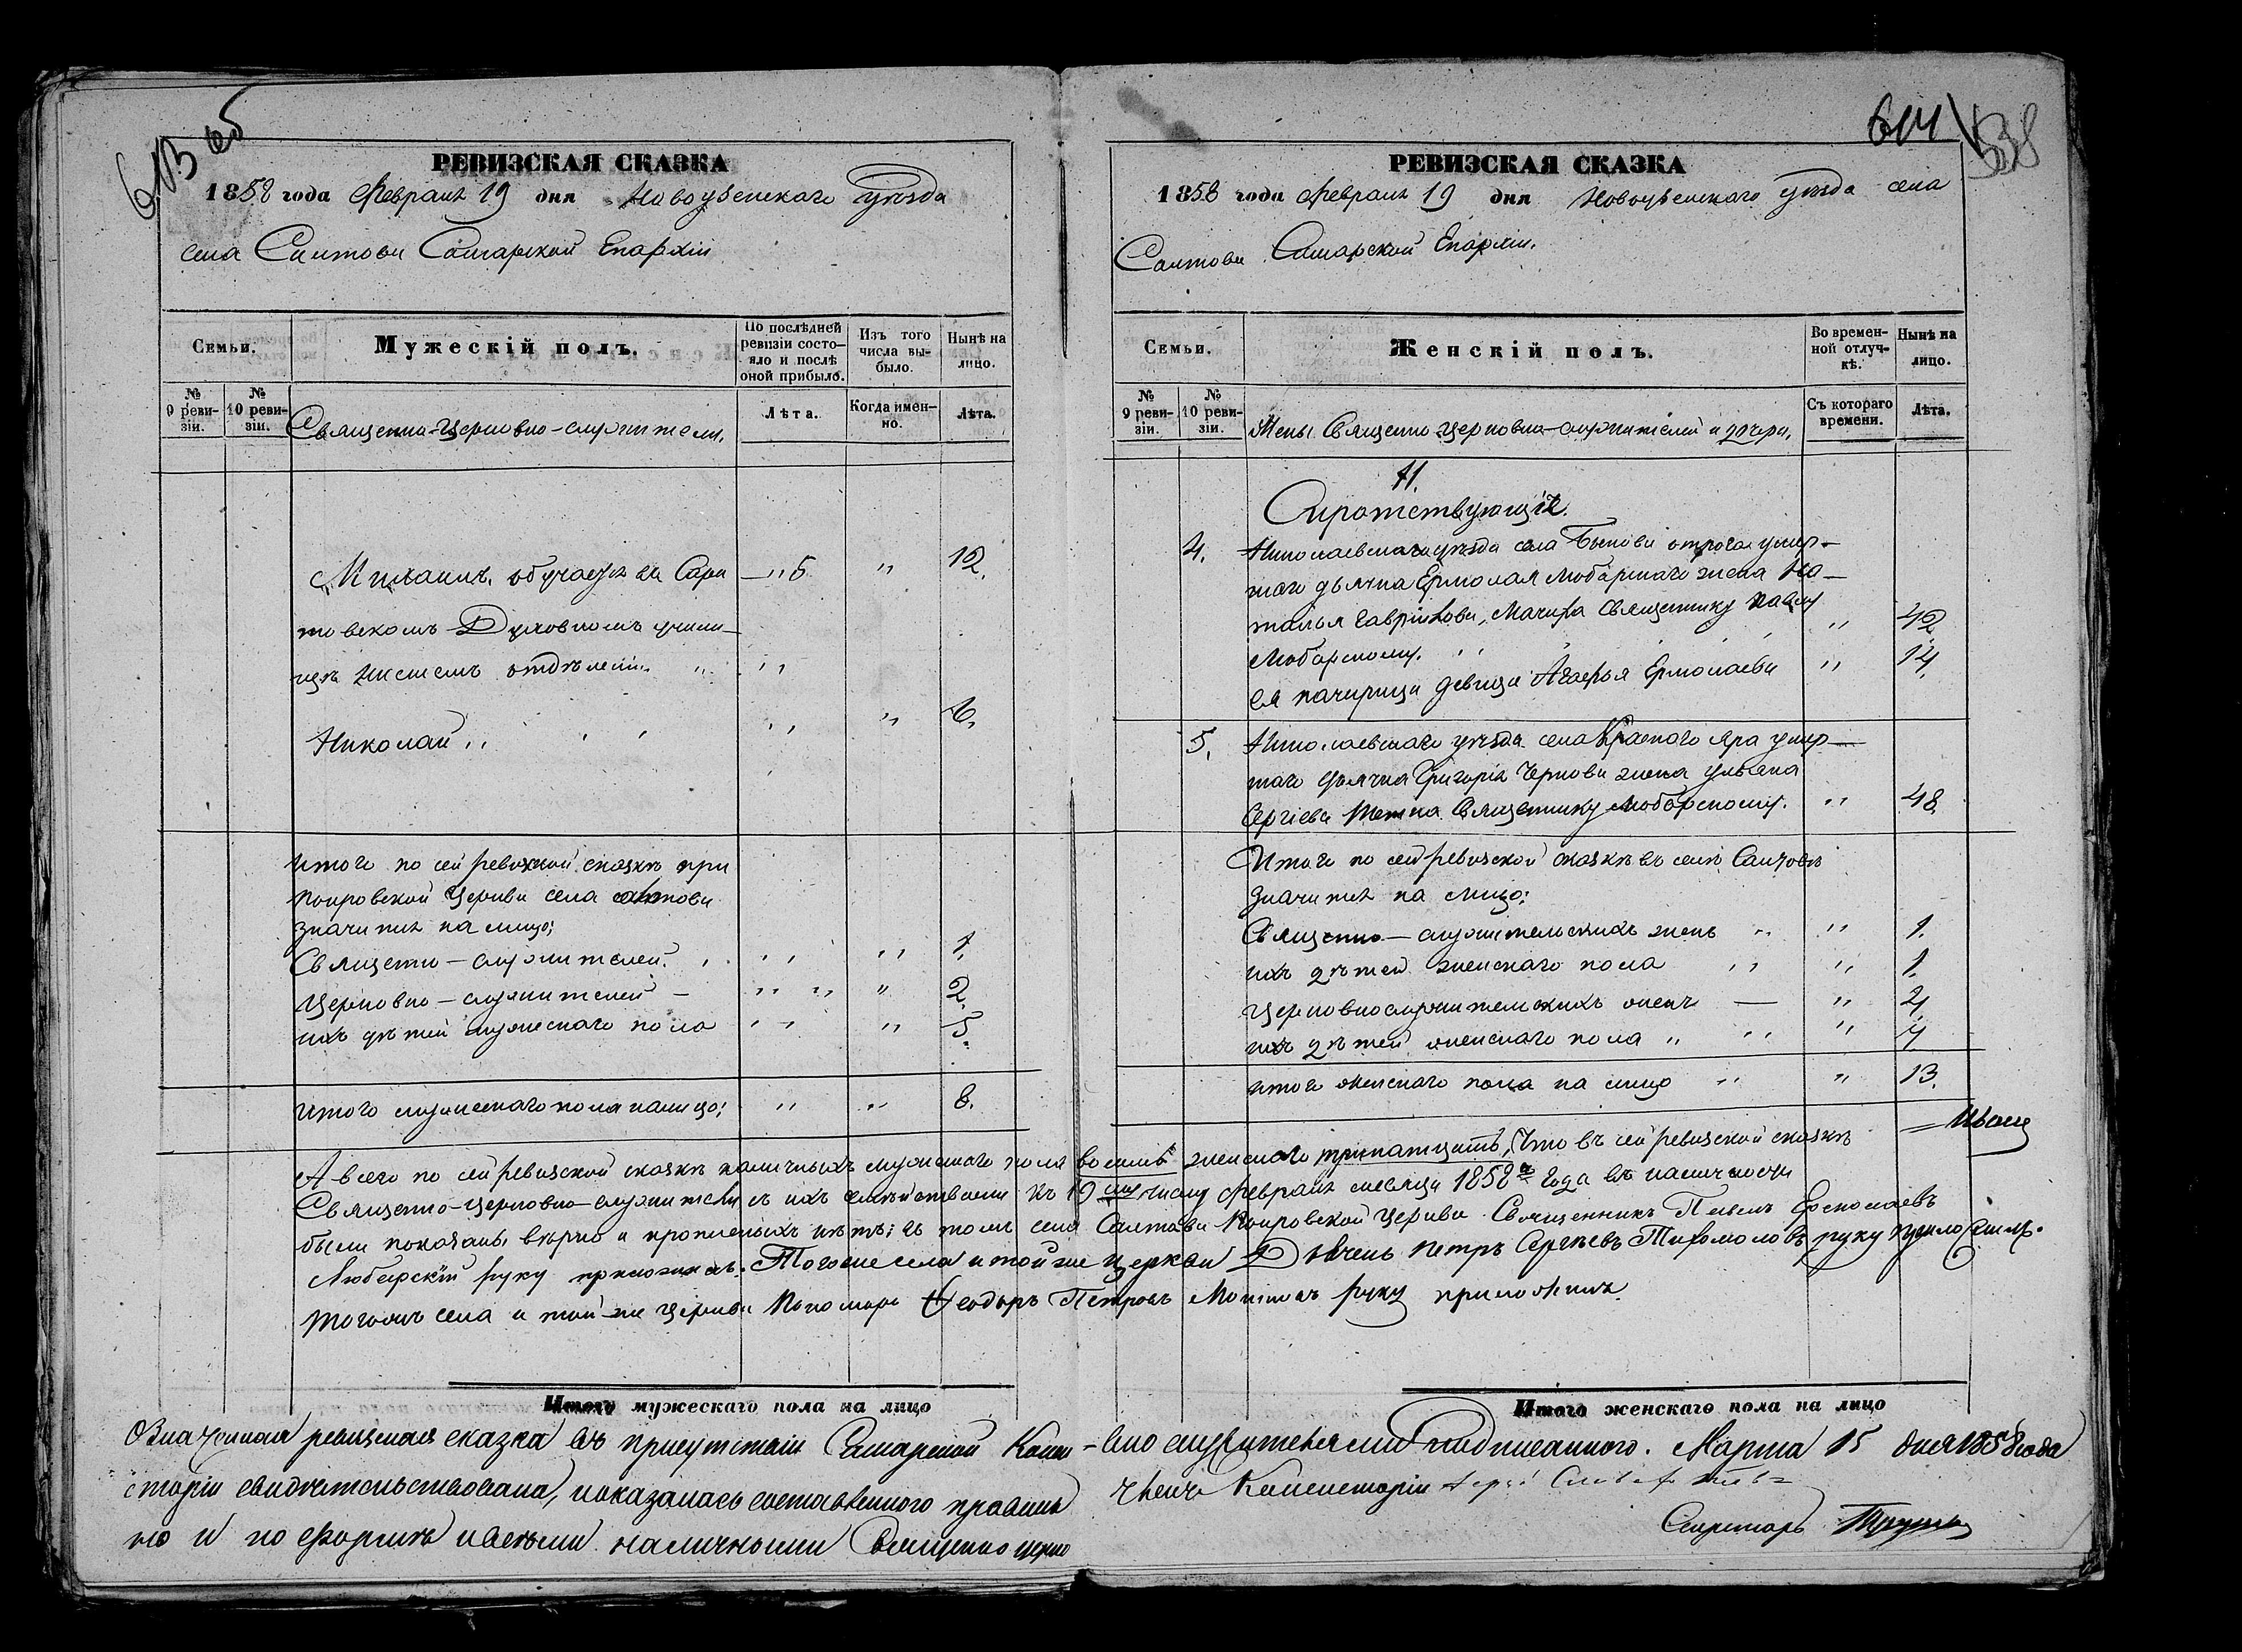 613 об
РЕВИЗСКАЯ СКАЗКА
1858 года Февраля 19 дня Новоузенскаго уѣзда
села Салтова Самарской Епархіи
Семьи.
Мужескій полъ.
По послѣдней ревизіи состояло и послѣ оной прибыло.
Изъ того числа выбыло.
Нынѣ на лицо.
№ 9 ревизіи.
№ 10 ревизіи.
Священно-Церковно-служители.
Лѣта.
Когда именно.
Лѣта.
Михаилъ, обучается въ Сара „ 5 „ 12.
товскомъ Духовномъ учили-
щѣ низшемъ отдѣленіи „ „
Николай „ „ „ 6.
Итого по сей ревизской сказкѣ при
Покровской Церкви села Салтова
значится на лицо;
Священно-служителей „ „ 1.
Церковно-служителей – „ „ „ 2.
ихъ дѣтей мужескаго пола „ „ 5.
Итого мужескаго пола налицо; „ „ 8.
614
538
РЕВИЗСКАЯ СКАЗКА
1858 года Февраля 19 дня Новоузенскаго уѣзда села
Салтова Самарской Епархіи.
Семьи.
Женскій полъ.
Во временной отлучкѣ.
Нынѣ на лицо.
№ 9 ревизіи.
№ 10 ревизіи.
Жены Священно Церковно-служителей и дочери.
Съ котораго времени.
Лѣта.
Сиротствующіе.
4. Николаевскаго уѣзда села Быкова отрога умер-
шаго дьячка Ермолая Любарскаго жена На-
талья Гаврилова, Мачиха Священнику Павлу „ 42
Любарскому.
ея пачерица девица Агафья Ермолаева „ 14.
5. Николаевскаго уѣзда села Краснаго Яра умер-
шаго Дьячка Григорія Чернова жена Ульяна
Сергіева тетка Священнику Любарскому. „ 48.
Итого по сей ревизской сказкѣ въ селѣ Салтовѣ
значится на лицо;
Священно-служительскихъ женъ „ „ 1.
ихъ дѣтей женскаго пола „ „ 1.
Церковнослужительскихъ женъ — „ 4
ихъ дѣтей женскаго пола „ „ „ 7
Итого женскаго пола на лицо „ „ 13.
А всего по сей ревизской сказкѣ наличныхъ мужескаго пола восемь женскаго тринатцать, Что въ сей ревизской сказкѣ
Священно-Церковно-служители съ ихъ семѣйствами къ 19му числу февраля месяца 1858го года въ наличности
были показаны вѣрно и прописныхъ нѣтъ; въ томъ села Салтова Покровской Церкви Священникъ Павелъ Ермолаевъ
Любарскій руку приложилъ. Тогоже села и тойже церкви Дьячекъ Петръ Сергѣевъ руку приложилъ.
Тогожъ села и той-же Церкви Пономарь Ѳеодоръ Петровъ руку приложилъ
Итого мужескаго пола на лицо
Итого женскаго пола на лицо
Означенная ревизская сказка въ присутствіи Самарской Конси-
сторіи свидѣтельствована, и оказалась составленного правиль
но и по формѣ и всѣми наличными Священно церко
вно служителями подписанного. Марта 15 дня 1858 года
Членъ Консисторіи
Секретарь